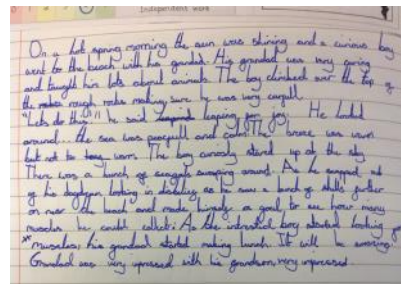 Independent work
On a hot spring morning the sun was shining and a curious boy
went to the beach with his grandad. His grandad was very caring
and taught him lots about animals. The boy climbed over the top of
the rough rocks making sure he was very carfull.
"Lets do this!!" he said leaping for joy. He looked
around... the sea was peacfull and calm. The breeze was warm
but not to warm. The boy curiously stared up at the sky.
There was a bunch of seagulls swooping around. As he snapped out
of his daydream looking in distance as he saw a bunch of shells further
on near the beach and made himself a goal to see how many
muscles he could collect. As the intrested boy started looking for
muscules, his grandad started making lunch. It will be amazing.
Grandad was very upressed with his grandson, very impressed.